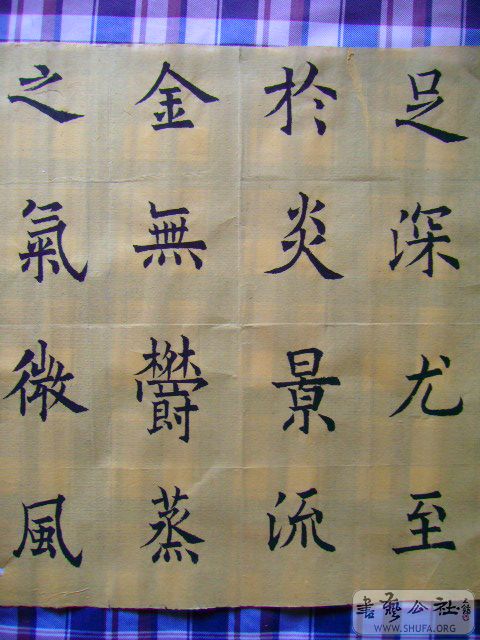 足深尤至
於炎景流
金無鬱蒸
之氣微風
書藝公社
WWW.SHUFA.ORG